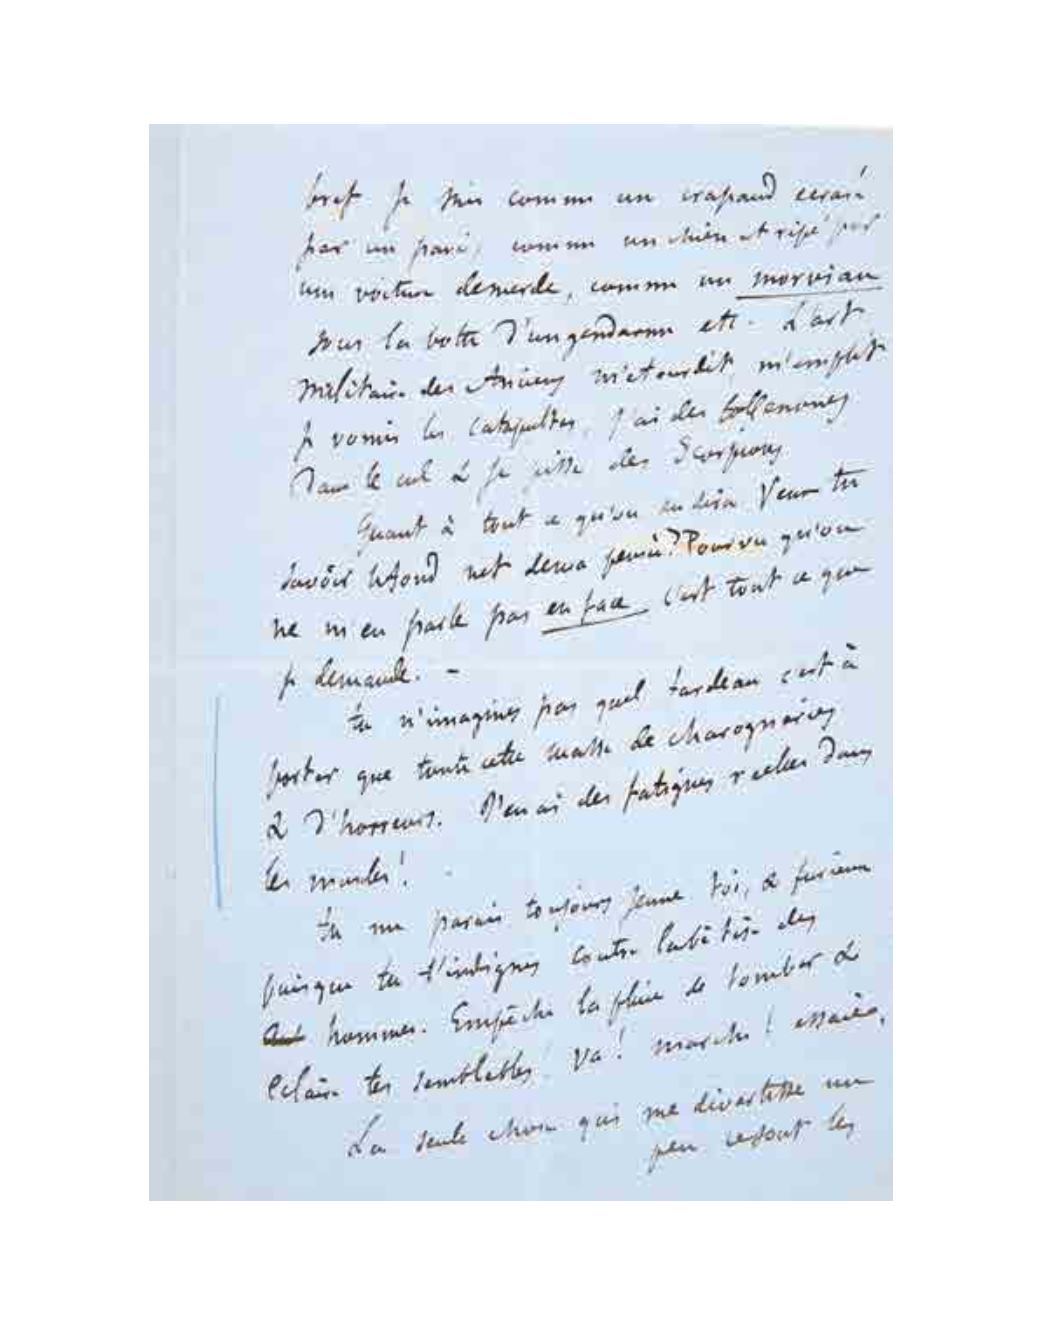 bref je suis comme un crapaud écrasé
par un pavé, comme un chien étripé par
une voiture de merde, comme un morviau
sous la botte d'un gendarme etc. L'art
militaire des Anciens m'étourdit, m'emplit
je vomis les catapultes, j'ai des tollenones
dans le cul & je pisse des scorpions
Quant à tout ce qu'on en dira Veux tu
savoir le fond net de ma pensée? Pourvu qu'on
ne m'en parle pas en face c'est tout ce que
je demande. –
tu n'imagines pas quel fardeau c'est à
porter que toute cette masse de charogneries
& d'horreurs. J'en ai des fatigues réelles dans
les muscles!
tu me parais toujours jeune toi, & furieux
puisque tu t'indignes contre la bêtise des
hommes. Empêche la pluie de tomber &
éclaire tes semblables! va! marche! essaie,
La seule chose qui me divertisse un
peu ce sont les